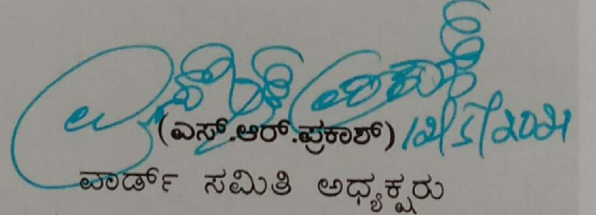 (ಎಸ್.ಆರ್.ಪ್ರಕಾಶ್) 12/5/2021
ವಾರ್ಡ್ ಸಮಿತಿ ಅಧ್ಯಕ್ಷರು